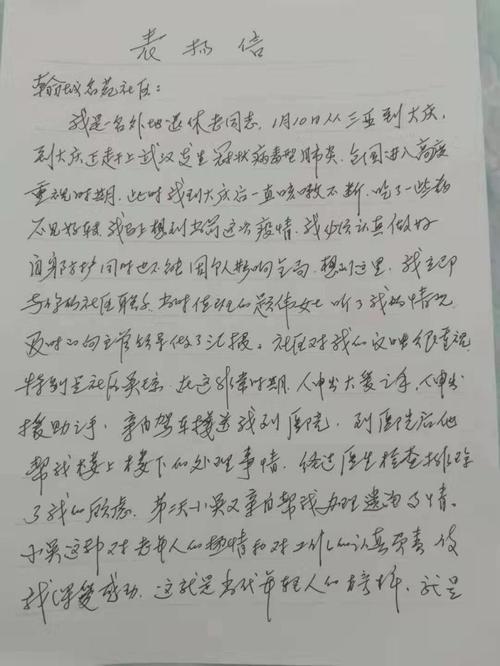 表扬信
翰城名苑社区：
我是一名外地退休老同志，1月10日从三亚到大庆，
到大庆正赶上武汉发生冠状病毒型肺炎，全国进入高度
重视时期，此时我到大庆后一直咳嗽不断，吃了一些药
不见好转，我马上想到当前这次疫情，我必须认真做好
自我防护同时也不能因个人影响全局，想到这里，我立即
与你们社区联系，当时值班的赵伟女士听了我的情况
及时的向主管领导做了汇报。社区对我们反映很重视
特别是社区吴，在这非常时期，伸出大爱之手，伸出
援助之手，亲自驾车接送我到医院，到医院后他
帮我楼上楼下的处理事情，经过医生检查排除
了我的顾虑。第二天小吴又亲自帮我办理事情。
小吴这种对老年人的热情和对工作的认真负责使
我深受感动，这就是当代年轻人的榜样，就是